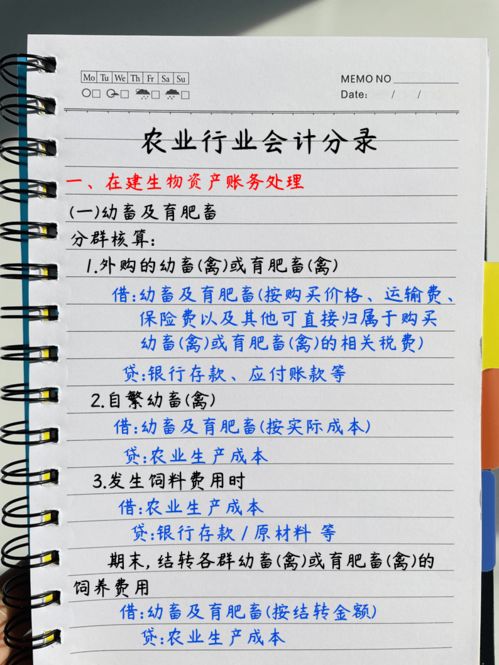 Mo Tu We Th Fr Sa Su
MEMO NO
Date: / /
农业行业会计分录
一、在建生物资产账务处理
(一)幼畜及育肥畜
分群核算:
1.外购的幼畜(禽)或育肥畜(禽)
借:幼畜及育肥畜(按购买价格、运输费、
保险费以及其他可直接归属于购买
幼畜(禽)或育肥畜(禽)的相关税费)
贷:银行存款、应付账款等
2.自繁幼畜(禽)
借:幼畜及育肥畜(按实际成本)
贷:农业生产成本
3.发生饲料费用时
借:农业生产成本
贷:银行存款/原材料 等
期末,结转各群幼畜(禽)或育肥畜(禽)的
饲养费用
借:幼畜及育肥畜(按结转金额)
贷:农业生产成本